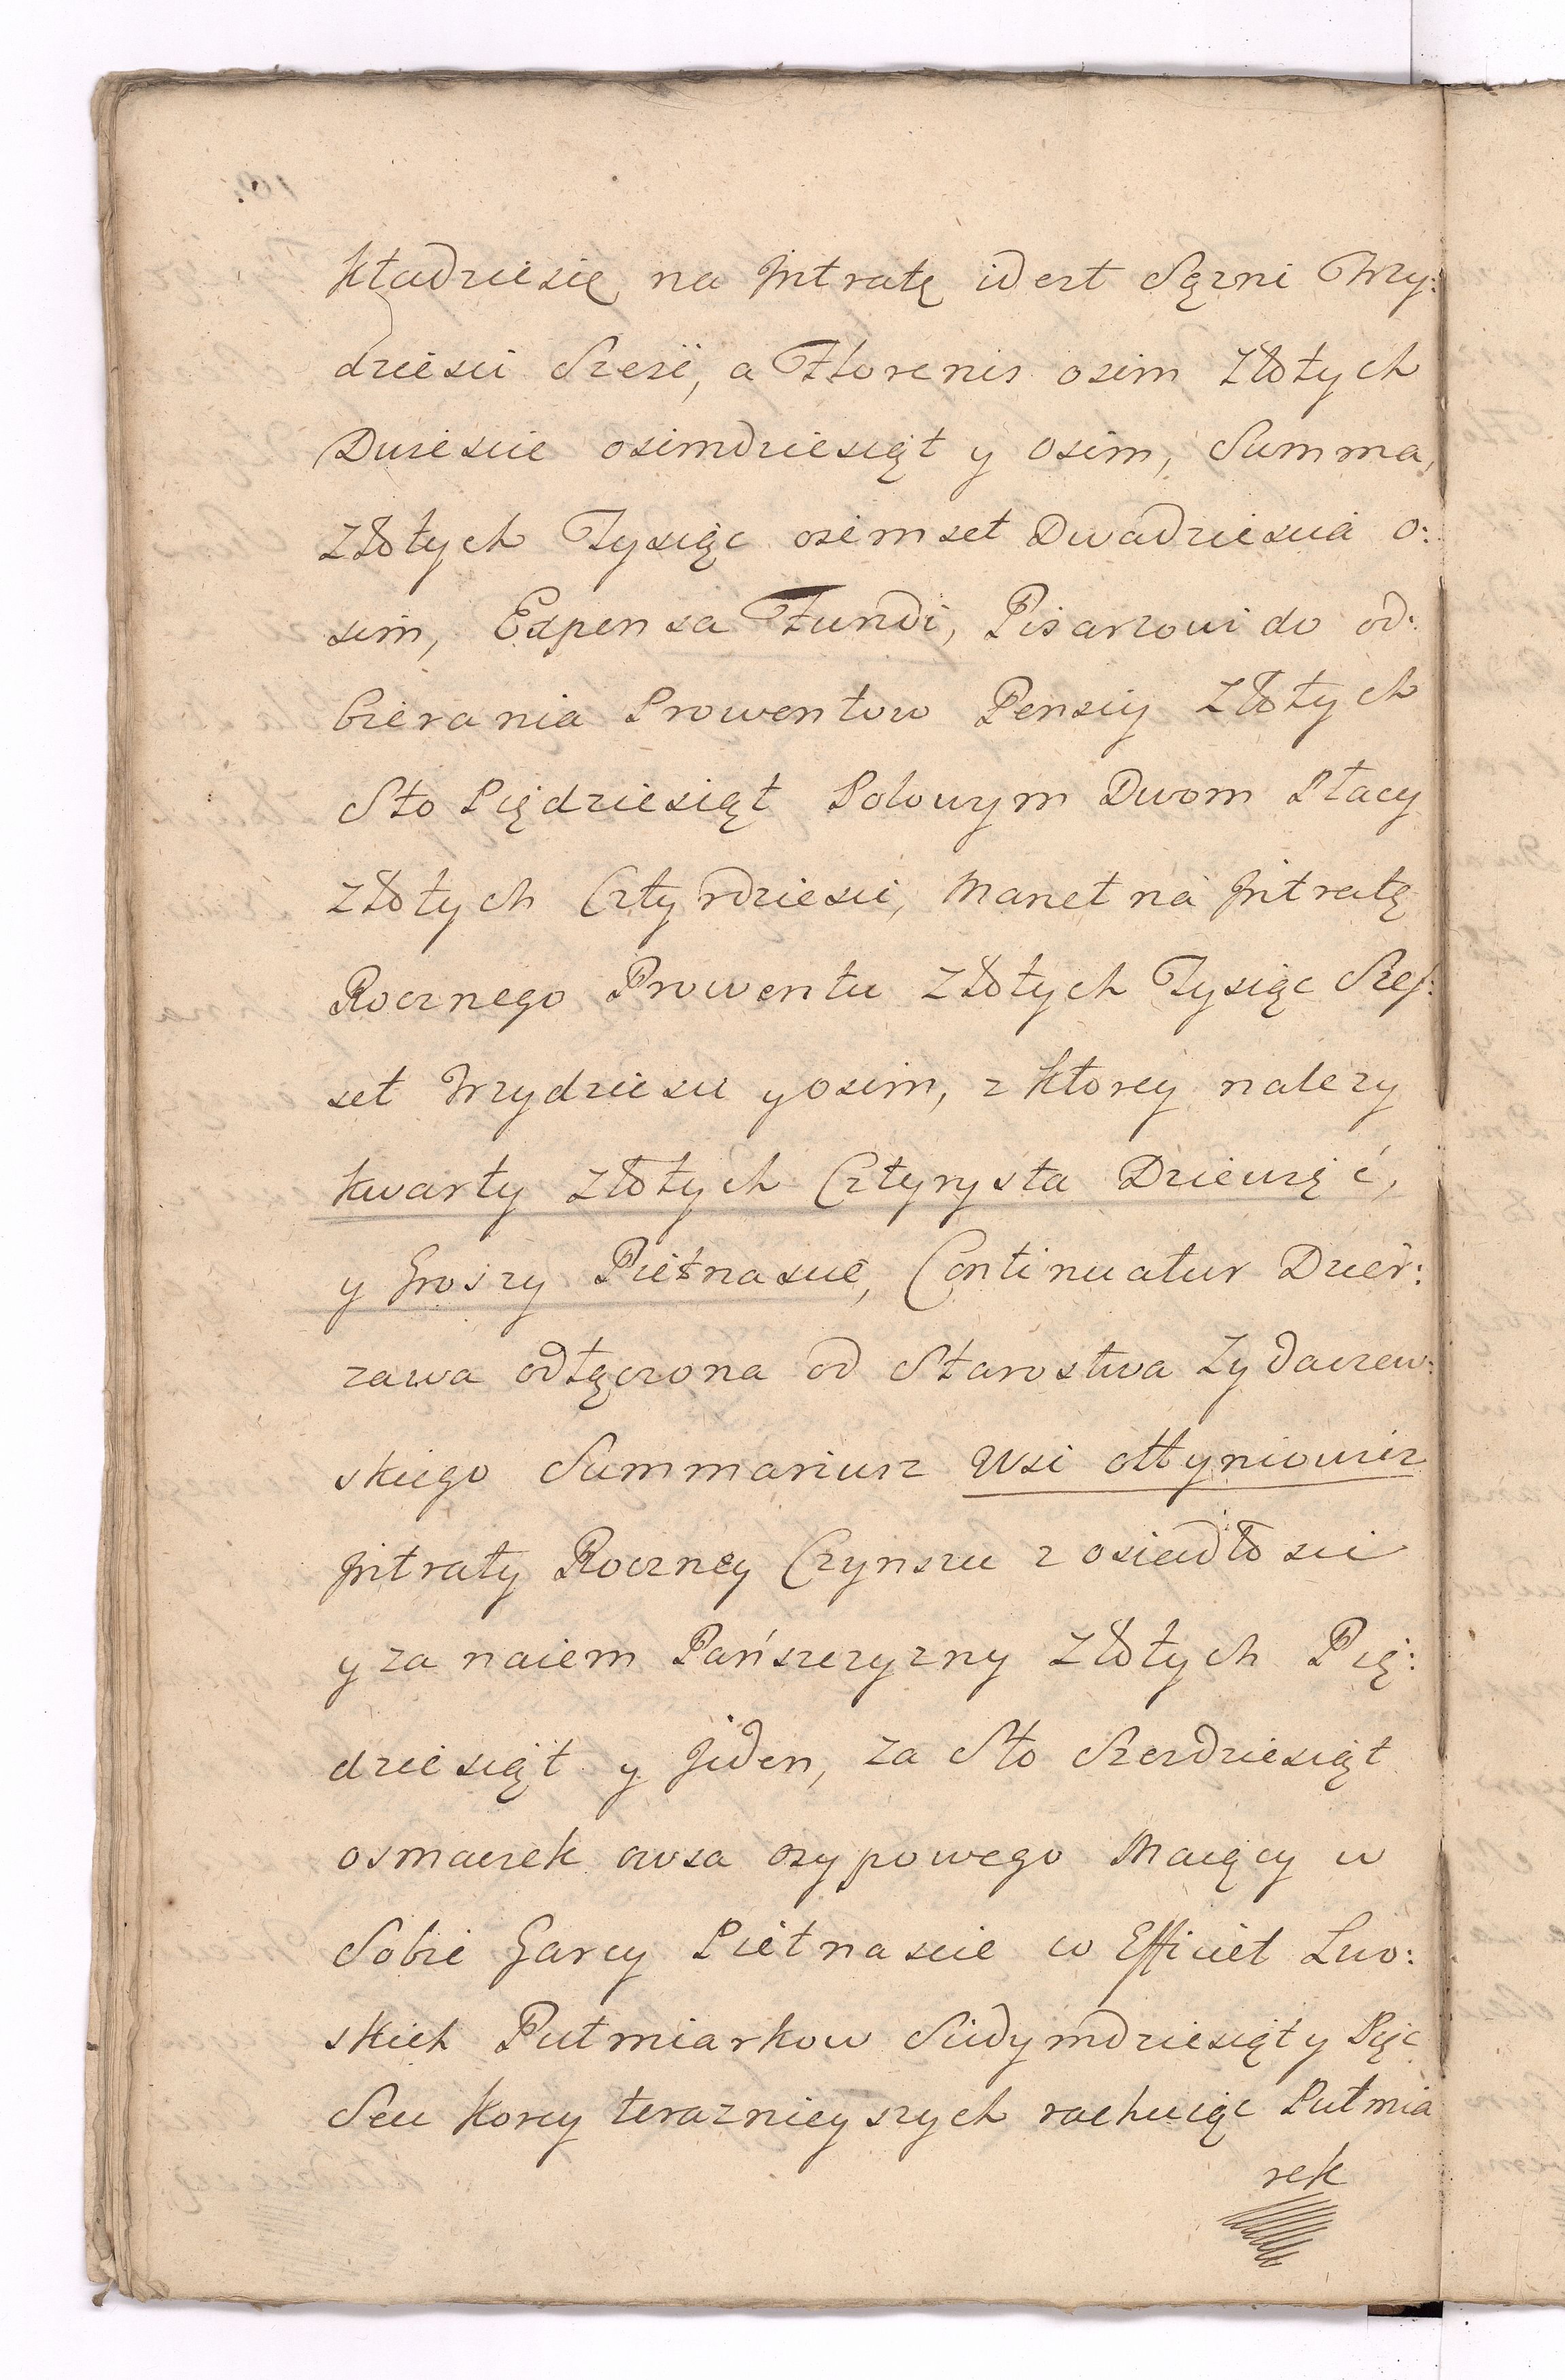 kładziesię na Jntratę id est Sęzni Trzy:
dziesci Szesc, a Florenis osim złotych
Dwiescie osimdziesiąt y osim, Summa,
złotych Tysiąc osimset Dwadziescia o:
sim, Expensa Fundi, Pisarzowi do od:
bierania Prowentow Pensiy złotych
Sto Piędziesiąt Polowym Dwom Płacy
złotych Cztyrdziesci, Manet na Jntratę
Rocznego Prowentu złotych Tysiąc Szes:
set Trzydziesci y osim, z ktorey nalezy
kwarty złotych Cztyrysta Dziewięć,
y Groszy Pietnascie, Continuatur Dzier:
zawa odłączona od Starostwa Zydaczew:
skiego Summariusz Wsi ottyniowicz
Jntraty Roczney Czynszu z osiadłosci
y za naiem Pańszczyzny złotych Pię:
dziesiąt y Jeden, za Sto Szesdziesiąt
osmaczek owsa osypowego Maiący w
Sobie Garcy Pietnascie co Efficiet Lwo:
skich Pułmiarkow Siedymdziesiąt y Pięc
Seu Korcy teraznieyszych rachuiąc Pułmia
rek